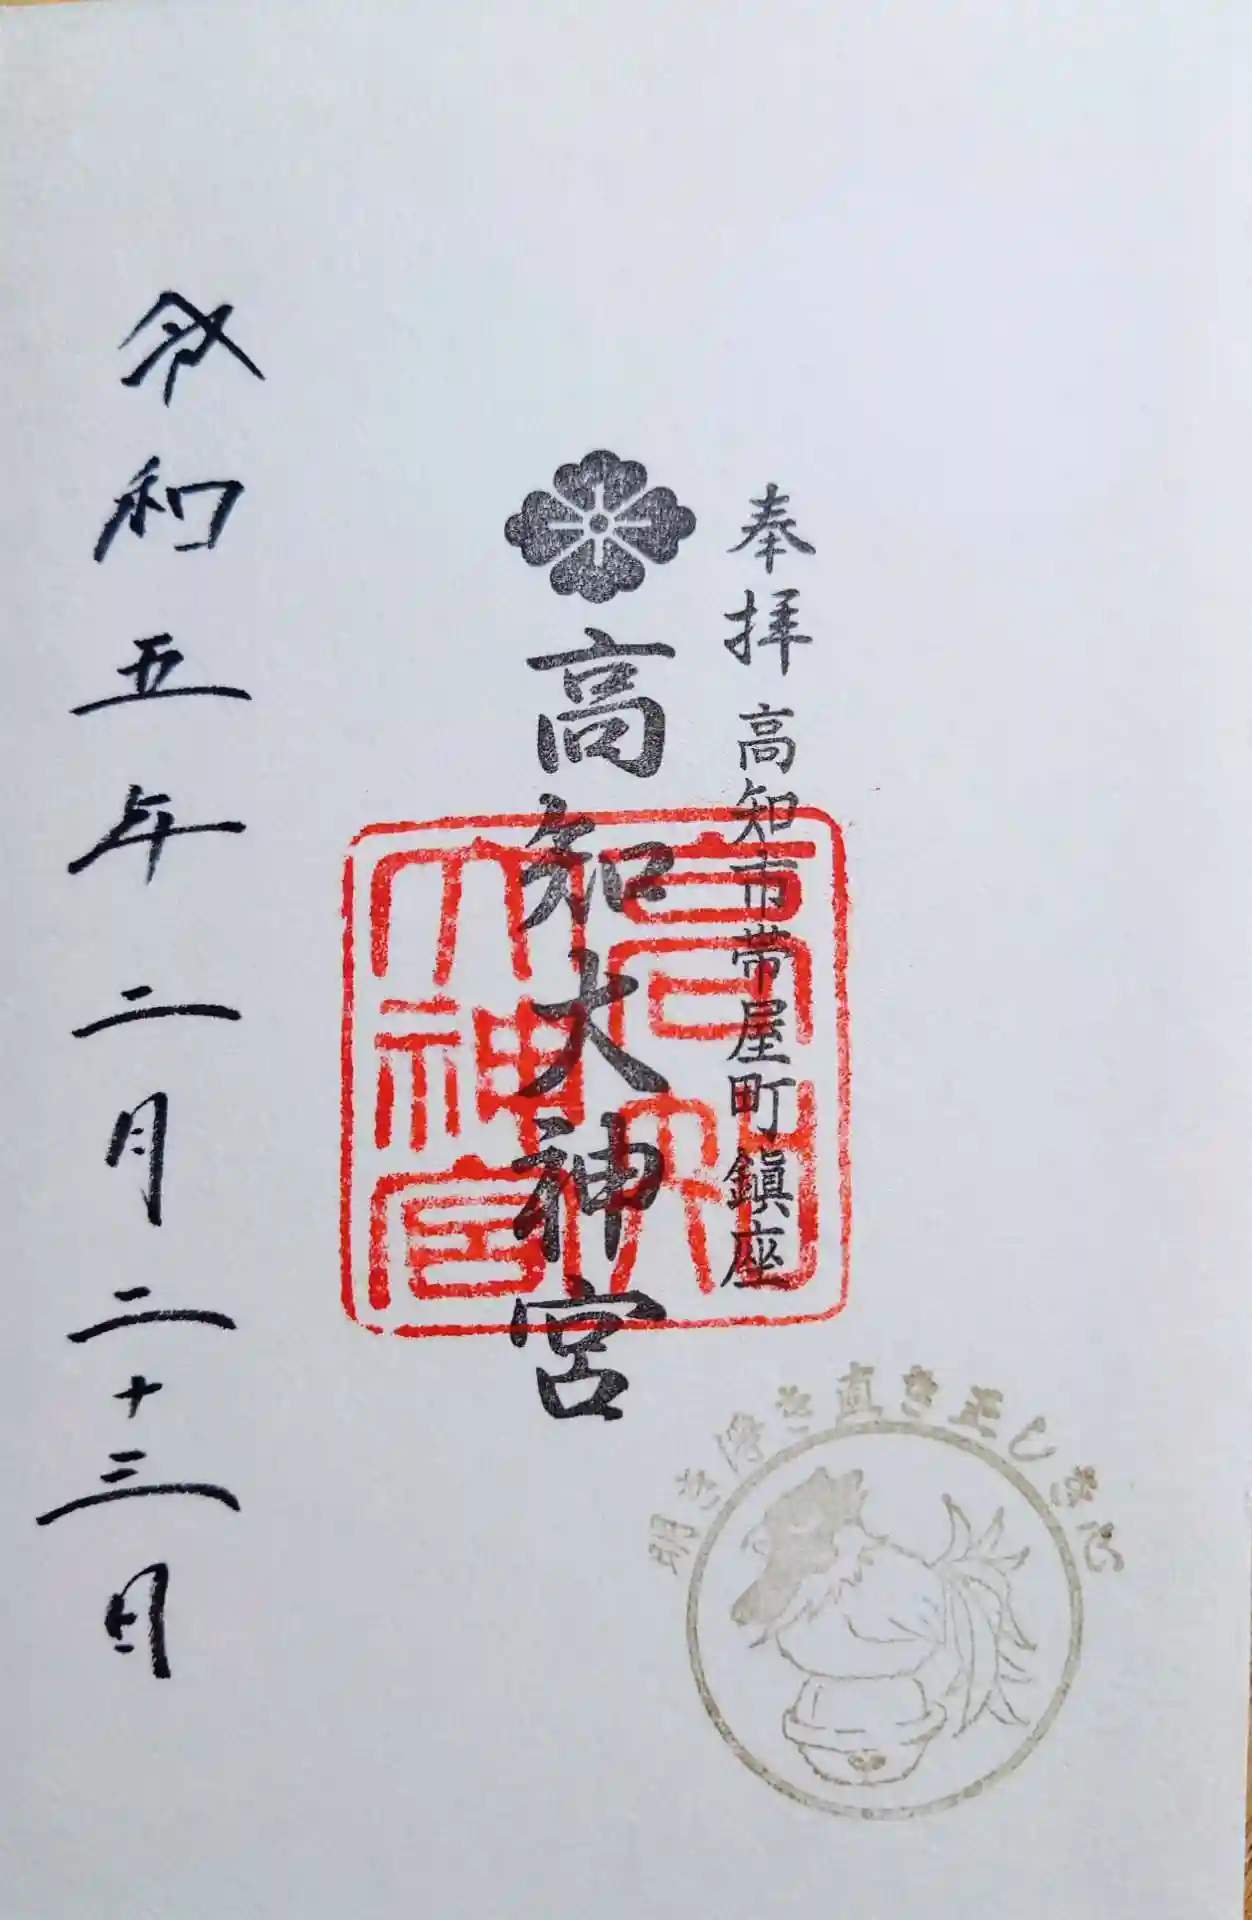 奉拝 高知市帯屋町鎮座
高知大神宮
高知
大神宮
令和五年二月二十三日
明き浄き直き正しき心